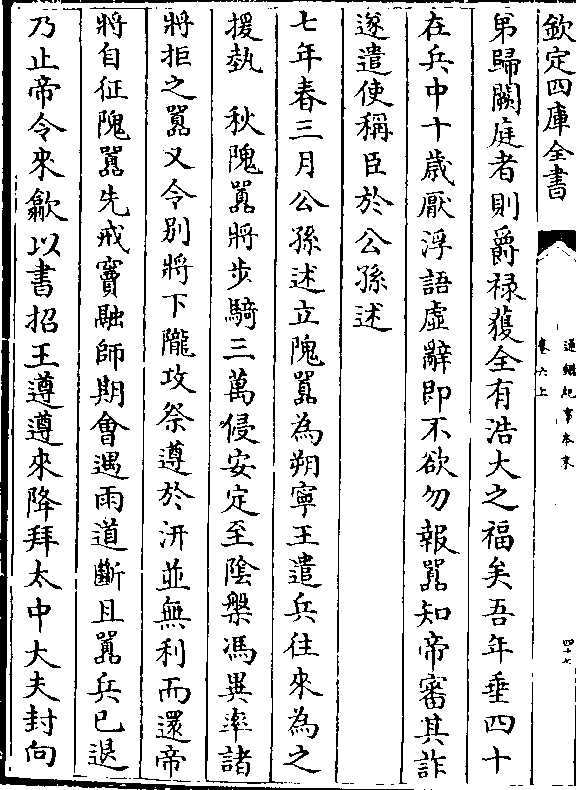 欽定四庫全書
通鑑紀事本末
卷六上
四十七
弟歸闕庭者則爵祿獲全有浩大之福矣吾年垂四十
在兵中十歲厭浮語虛辭即不欲勿報囂知帝審其詐
遂遣使稱臣於公孫述
七年春三月公孫述立隗囂為朔寧王遣兵往來為之
援埶　秋隗囂將步騎三萬侵安定至陰槃馮異率諸
將拒之囂又令别將下隴攻祭遵於汧並無利而還帝
將自征隗囂先戒竇融師期會遇雨道斷且囂兵已退
乃止帝令來歙以書招王遵遵來降拜太中大夫封向